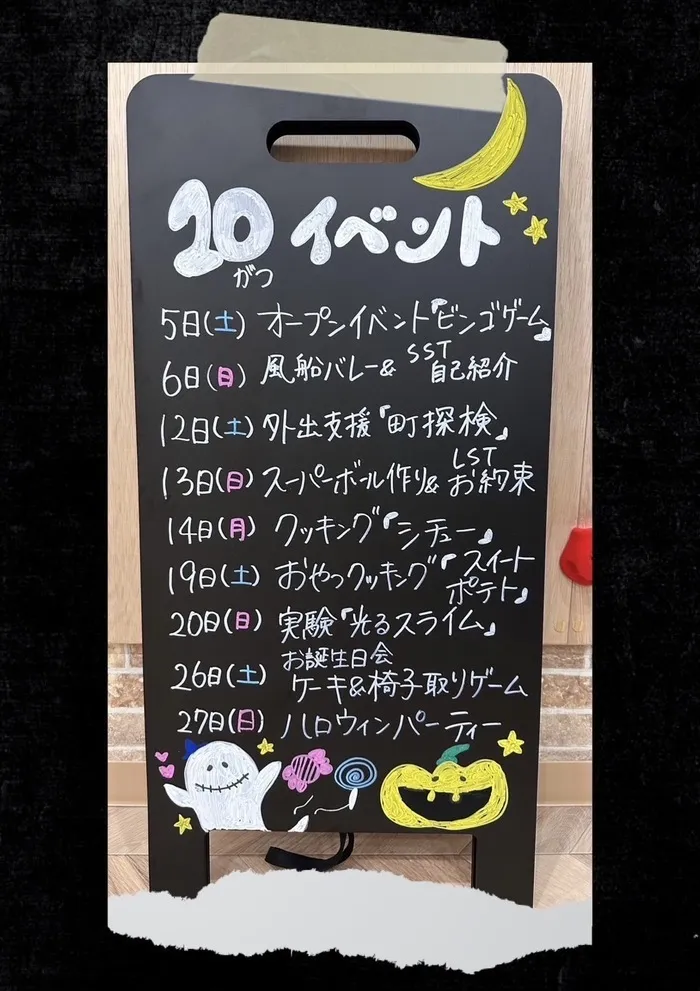 10イベント
がつ
5日(土) オープンイベント『ビンゴゲーム』
6日(日) 風船バレー& SST自己紹介
12日(土) 外出支援『町探検』
13日(日) スーパーボール作り& LSTお約束
14日(月) クッキング『シチュー』
19日(土) おやつクッキング『スイートポテト』
20日(日) 実験『光るスライム』
26日(土) お誕生日会
ケーキ&椅子取りゲーム
27日(日) ハロウィンパーティー